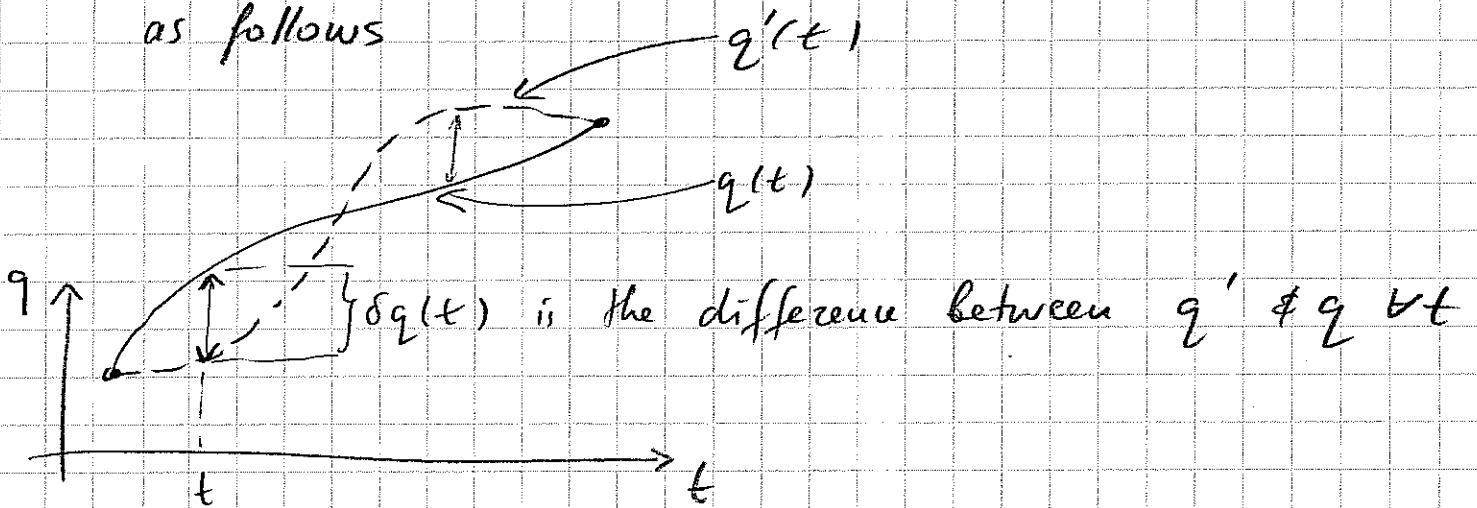 as follows
q'(t)
q(t)
q
δq(t) is the difference between q' & q ∀t
t
t